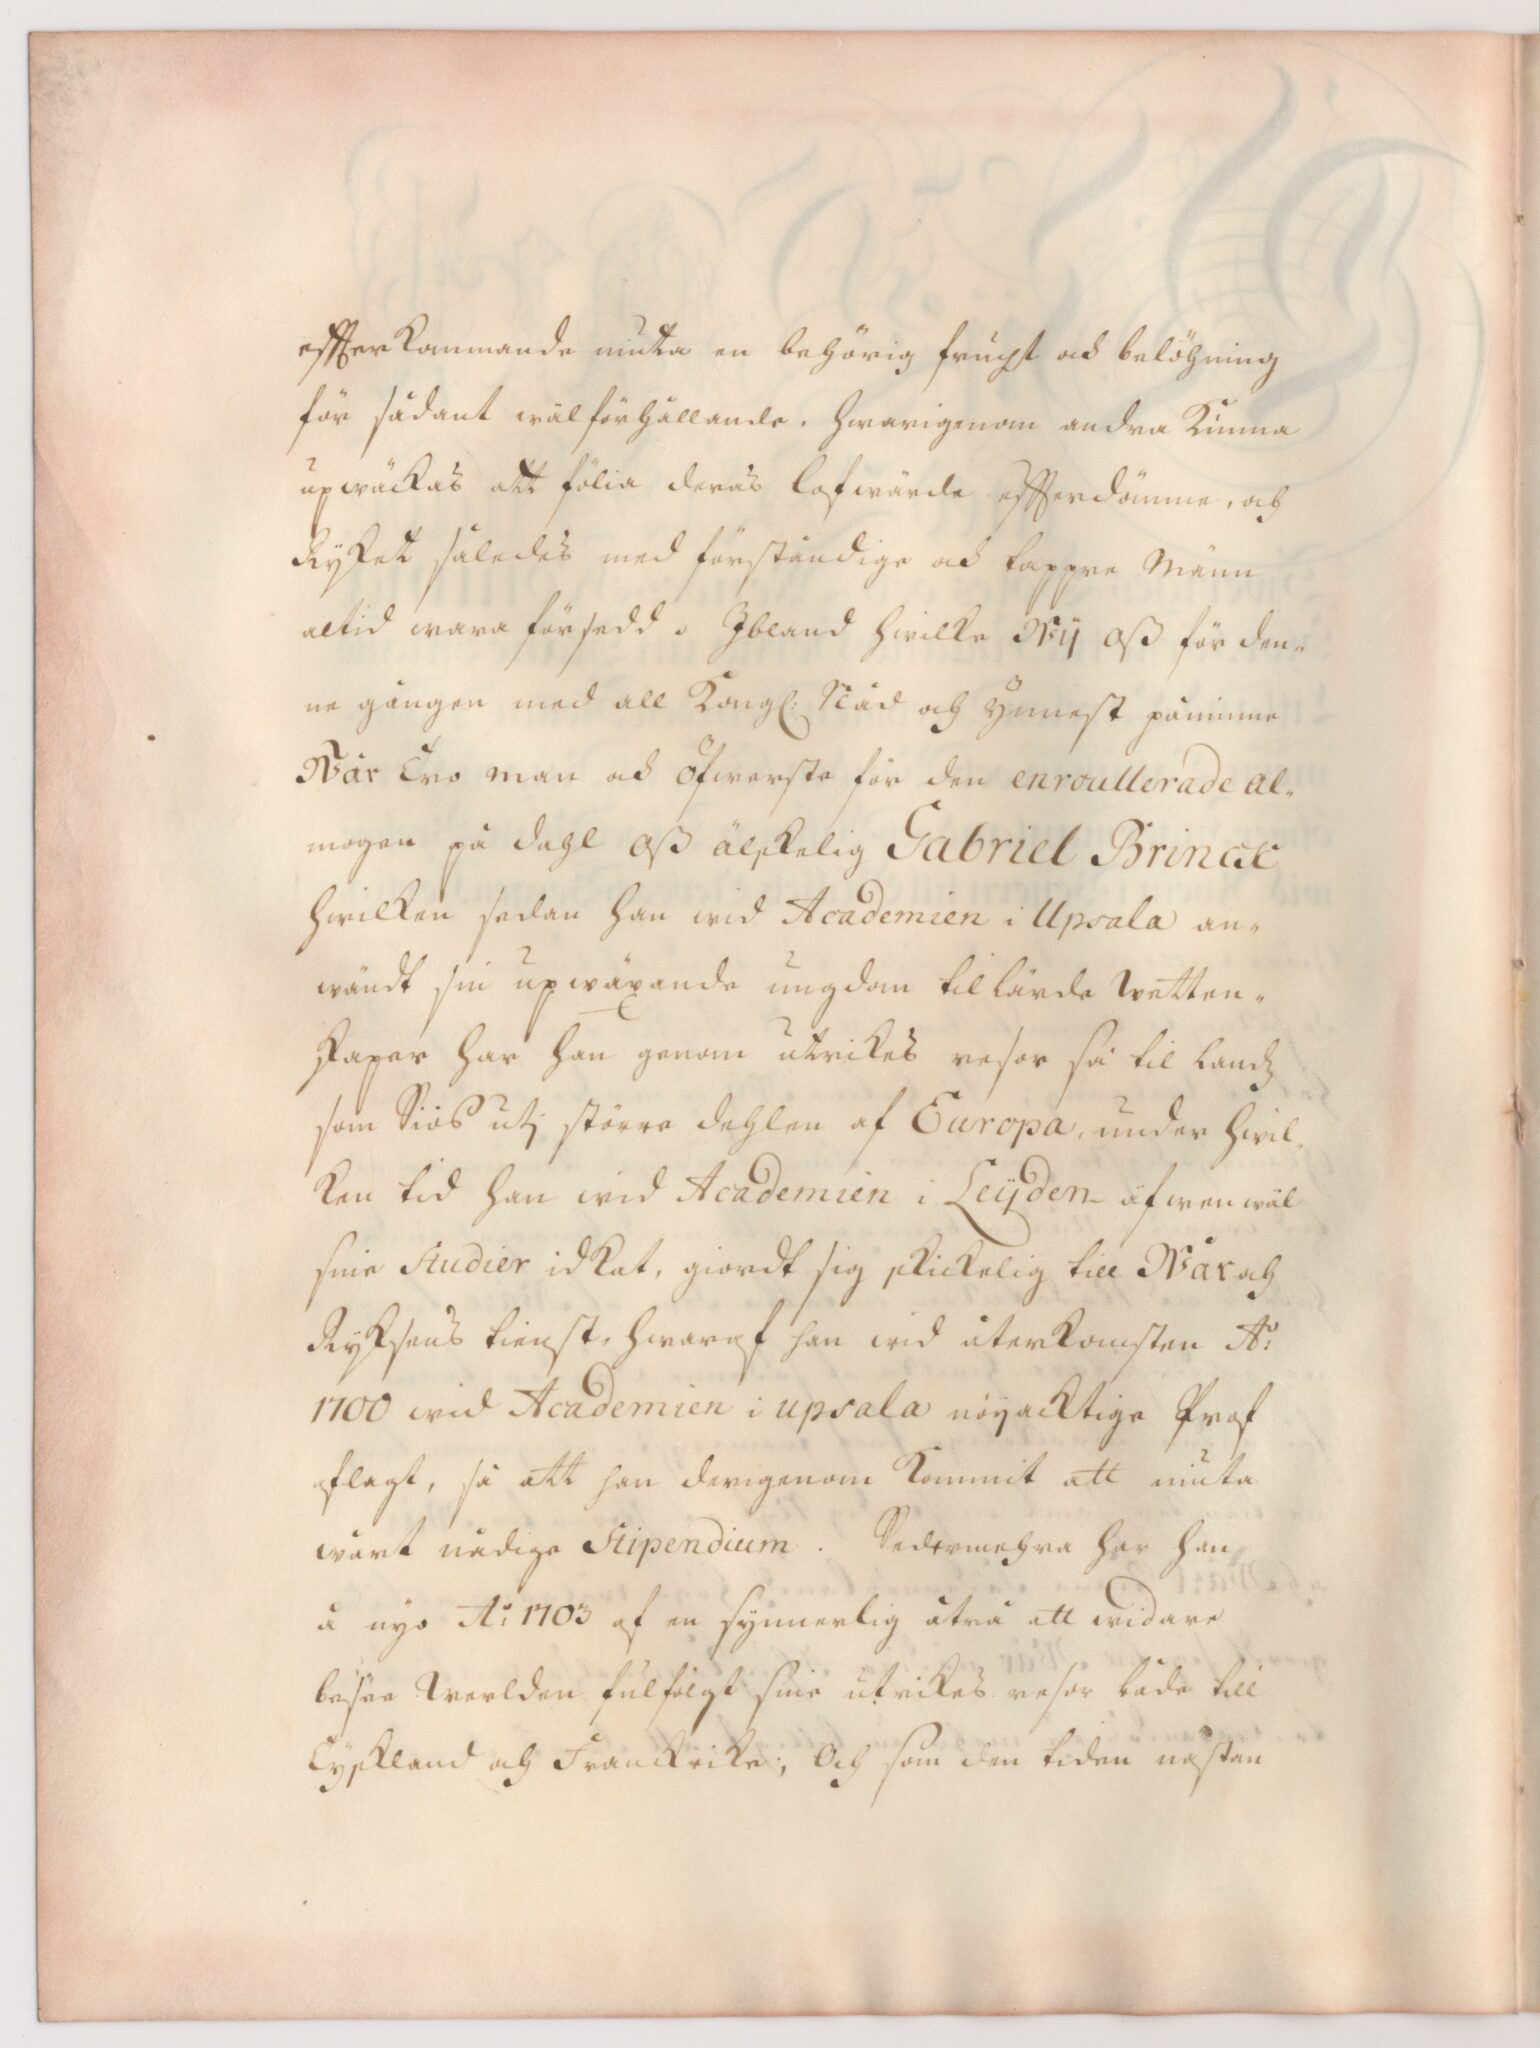 efterkommande niuta en behörig frucht och belöhning
för sådant wälförhållande. hwarigenom andra kunna
upwäckas att fölia deras lofwärde efterdömme, och
Ryket således med förståndige och tappre Männ
altid wara försedd. Ibland hwilka Wij oss för den„
ne gången med all Kongl: Nåd och Ynnest påminne
Wår Tro man och Öfwerste för den enroullerade al„
mogen på Dahl oß älskelig Gabriel Brinck
hwilken sedan han wid Academien i Upsala an„
wändt sin upwäxande ungdom til lärde Wetten„
skaper har han genom utrikes resor så til lands
som Siös uti större dehlen af Europa, under hwil„
ken tid han wid Academien i Leÿden äfwen wäl
sine Studier idkat, giordt sig skickelig till Wår och
Ryksens tienst, hwaraf han wid återkomsten A:o
1700 wid Academien i upsala nöyacktige Prof
aflagt, så att han derigenom kommit att niuta
wårt nådige Stipendium. Sedermehra har han
å nyo A:o 1703 af en synnerlig åtrå att widare
besee Werlden fulfölgt sine utrikes resor både till
Tyskland och Franckrike; Och som den tiden nästan